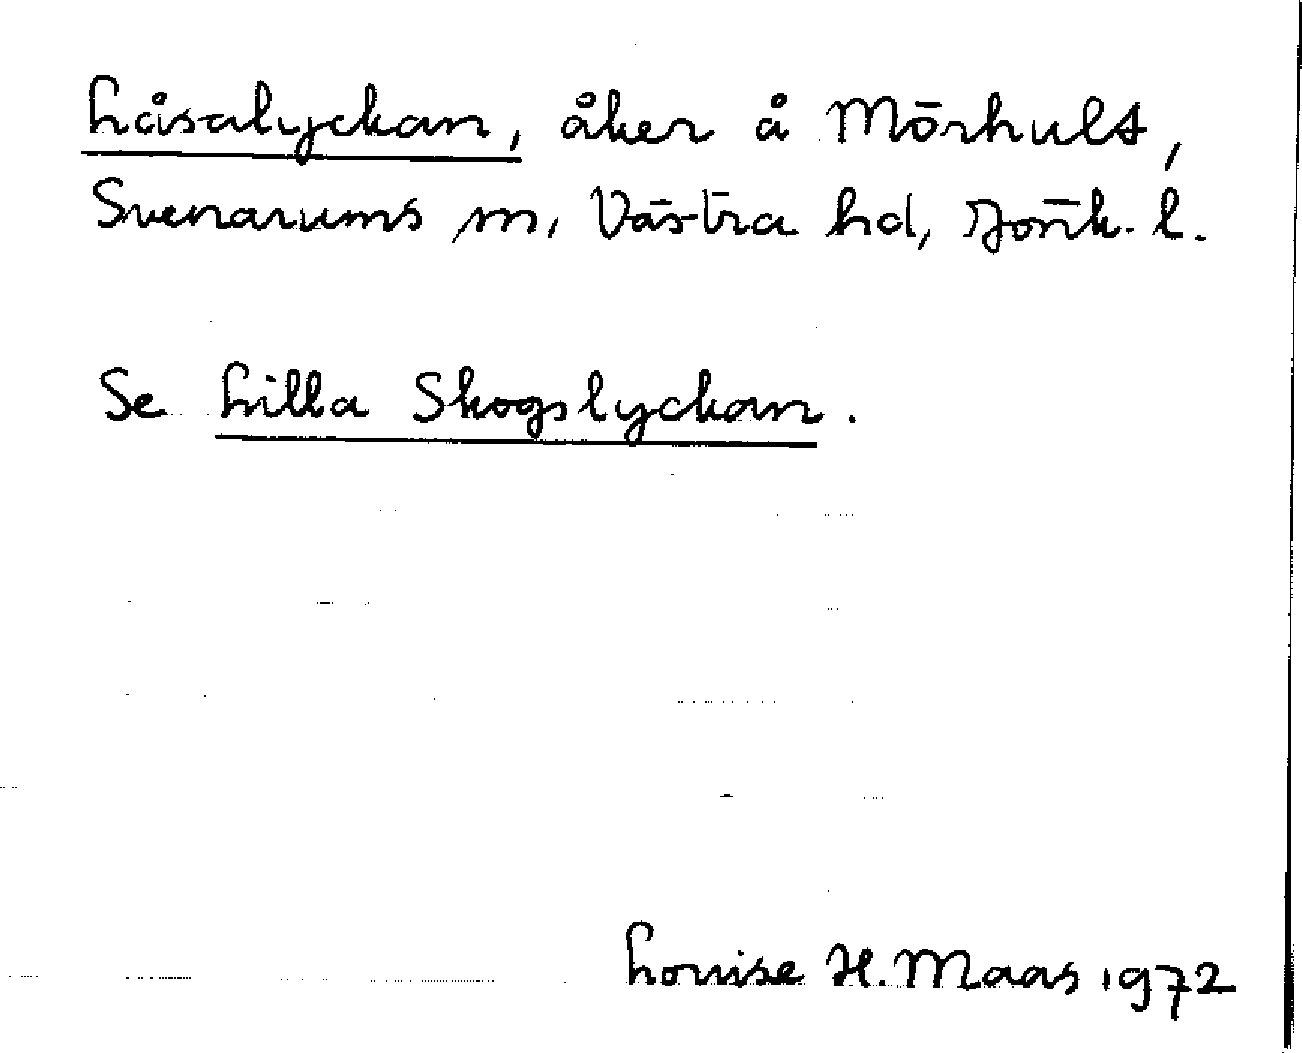 Låsalyckan, åker å Mörhult,
Svenarums sn, Västra hd, Jönk. l.
Se Lilla Skogslyckan.
Louise H. Maas 1972